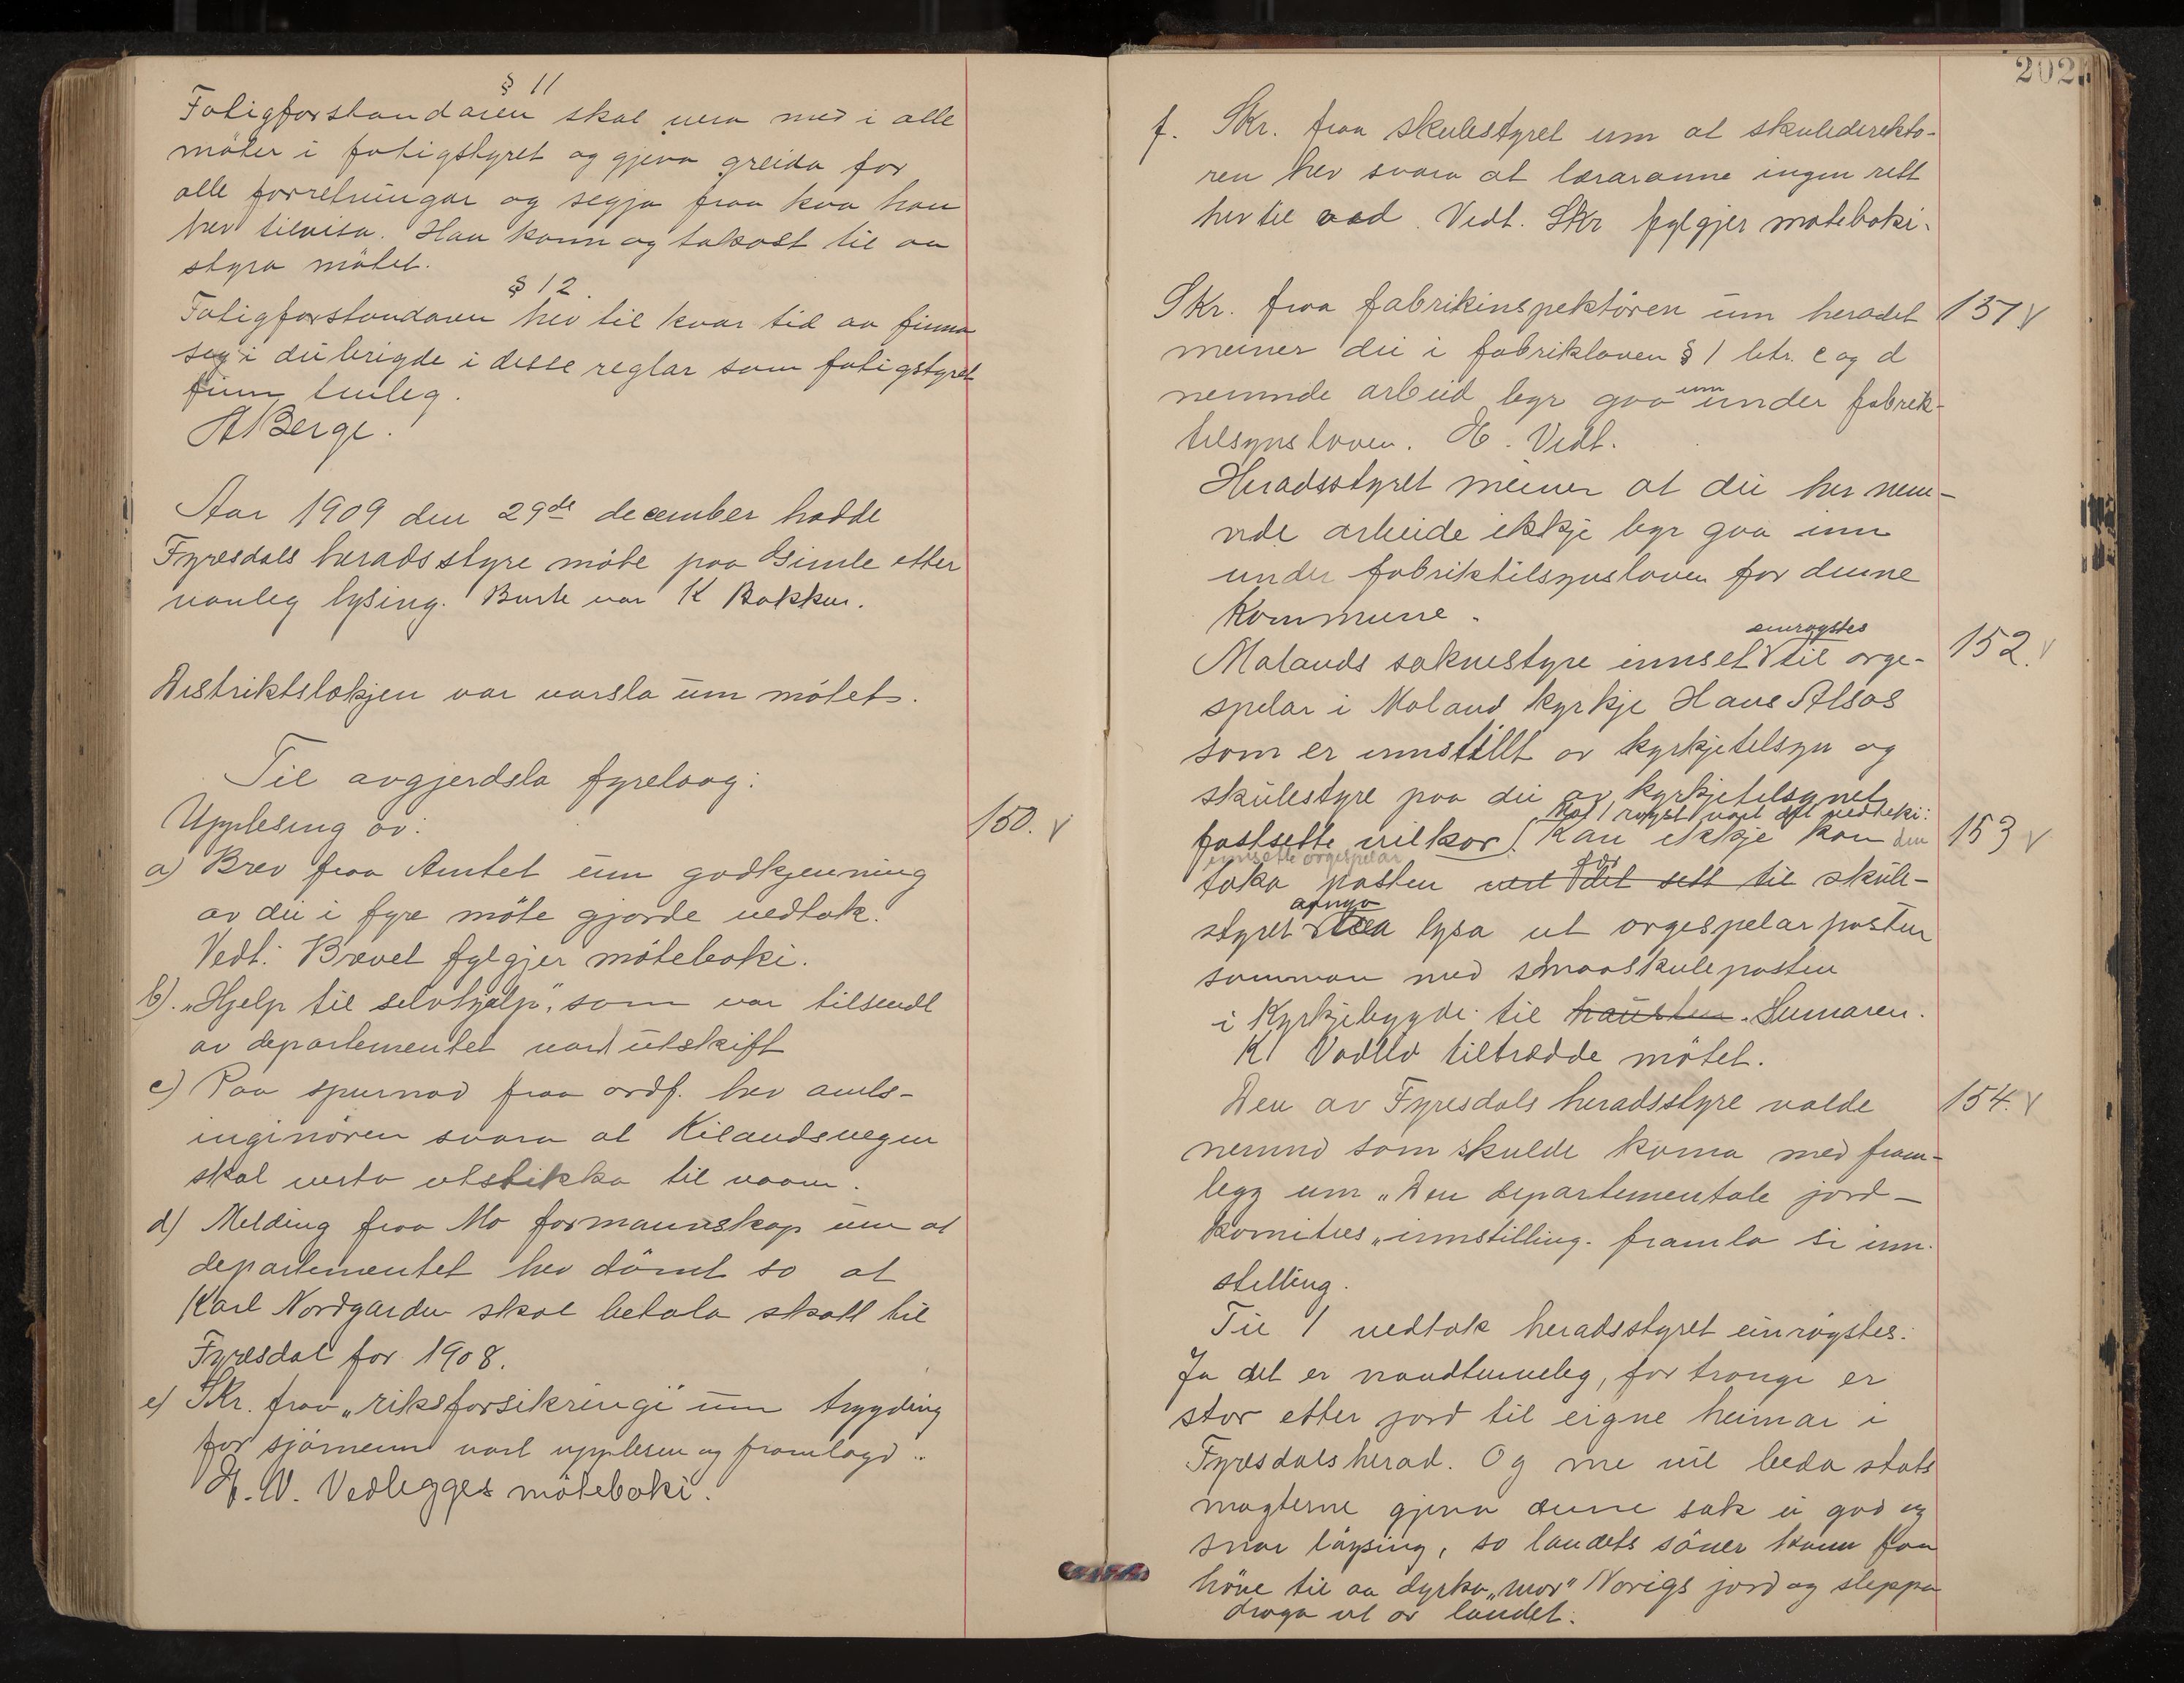 § 11
Fatigforstandaren skal vera med i alle
möter i fatigstyret og gjeva greida for
alle forretningar og segja fraa kva han
hev tilvisa. Han kann og takast til aa
styra mötet.
§ 12.
Fatigforstandaren hev til kvar tid aa finna
seg i dei brigde i desse reglar som fatigstyret
finn tenleg.
A Berge.
Aar 1909 den 29de december hadde
Fyresdals heradsstyre möte paa Gimle etter
vanleg lysing. Burte var K Bakken.
Distriktslækjen var varsla um mötet.
Til avgjerdsla fyrelaag:
Upplesing av:
150. v
a) Brev fraa Amtet um godkjenning
av dei i fyre möte gjorde vedtak.
Vedt: Brevet fylgjer möteboki.
b). „Hjelp til selvhjælp", som var tilsendt
av departementet vart utskift
c) Paa spurnad fraa ordf. hev amts-
inginören svara at Kilandsvegen
skal verta utstikka til vaaren.
d) Melding fraa Mo formannskap um at
departementet hev dömt so at
Karl Nordgarden skal betala skatt til
Fyresdal for 1908.
e) Skr. fraa „riksforsikringi" um trygding
for sjömenn vart upplesen og framlagd..
H. V. Vedlegges möteboki.
202
f. Skr. fraa skulestyret um at skuledirektö-
ren hev svara at læraranne ingen rett
hev til ved. Vedt. Skr fylgjer moteboki.
Skr. fraa fabrikinspektören um heradet 151 v
meiner dei i fabrikloven § 1 litr. c og d
nemnde arbeid bör gaa inn under fabrik-
tilsynsloven. H. Vedt.
Heradsstyret meiner at dei her nem-
nde arbeide ikkje bör gaa inn
under fabriktilsynsloven for denne
kommune.
einrøystes
Molands soknestyre innset til orge- 152. v
spelar i Moland kyrkje Hans Alsos
som er innstillt av kyrkjetilsyn og
skulestyre paa dei av kyrkjetilsynet
Mot 1 røyst vart det vedteki:
fastsette vilkor. Kan ikkje han den 153 v
innsette orgespelar
taka posten ved det sett til skule-
for
afnyo
styret lysa ut orgespelarposten
samman med smaaskuleposten
i Kyrkjebygdi til hausten. Sumaren.
K Vadlid tiltrædde mötet.
Den av Fyresdals heradsstyre valde 154. v
nemnd som skulde koma med fram-
legg um „Den departementale jord-
komites" innstilling. framla si inn-
stelling.
Til 1 vedtok heradsstyret einröystes:
Ja det er naudturveleg, for trongi er
stor etter jord til eigne heimar i
Fyresdals herad. Og me vil beda stats
magterne gjeva denne sak ei god og
snar löysing, so landets söner kann faa
höve til aa dyrka „mor" Norigs jord og sleppa
draga ut av landet.